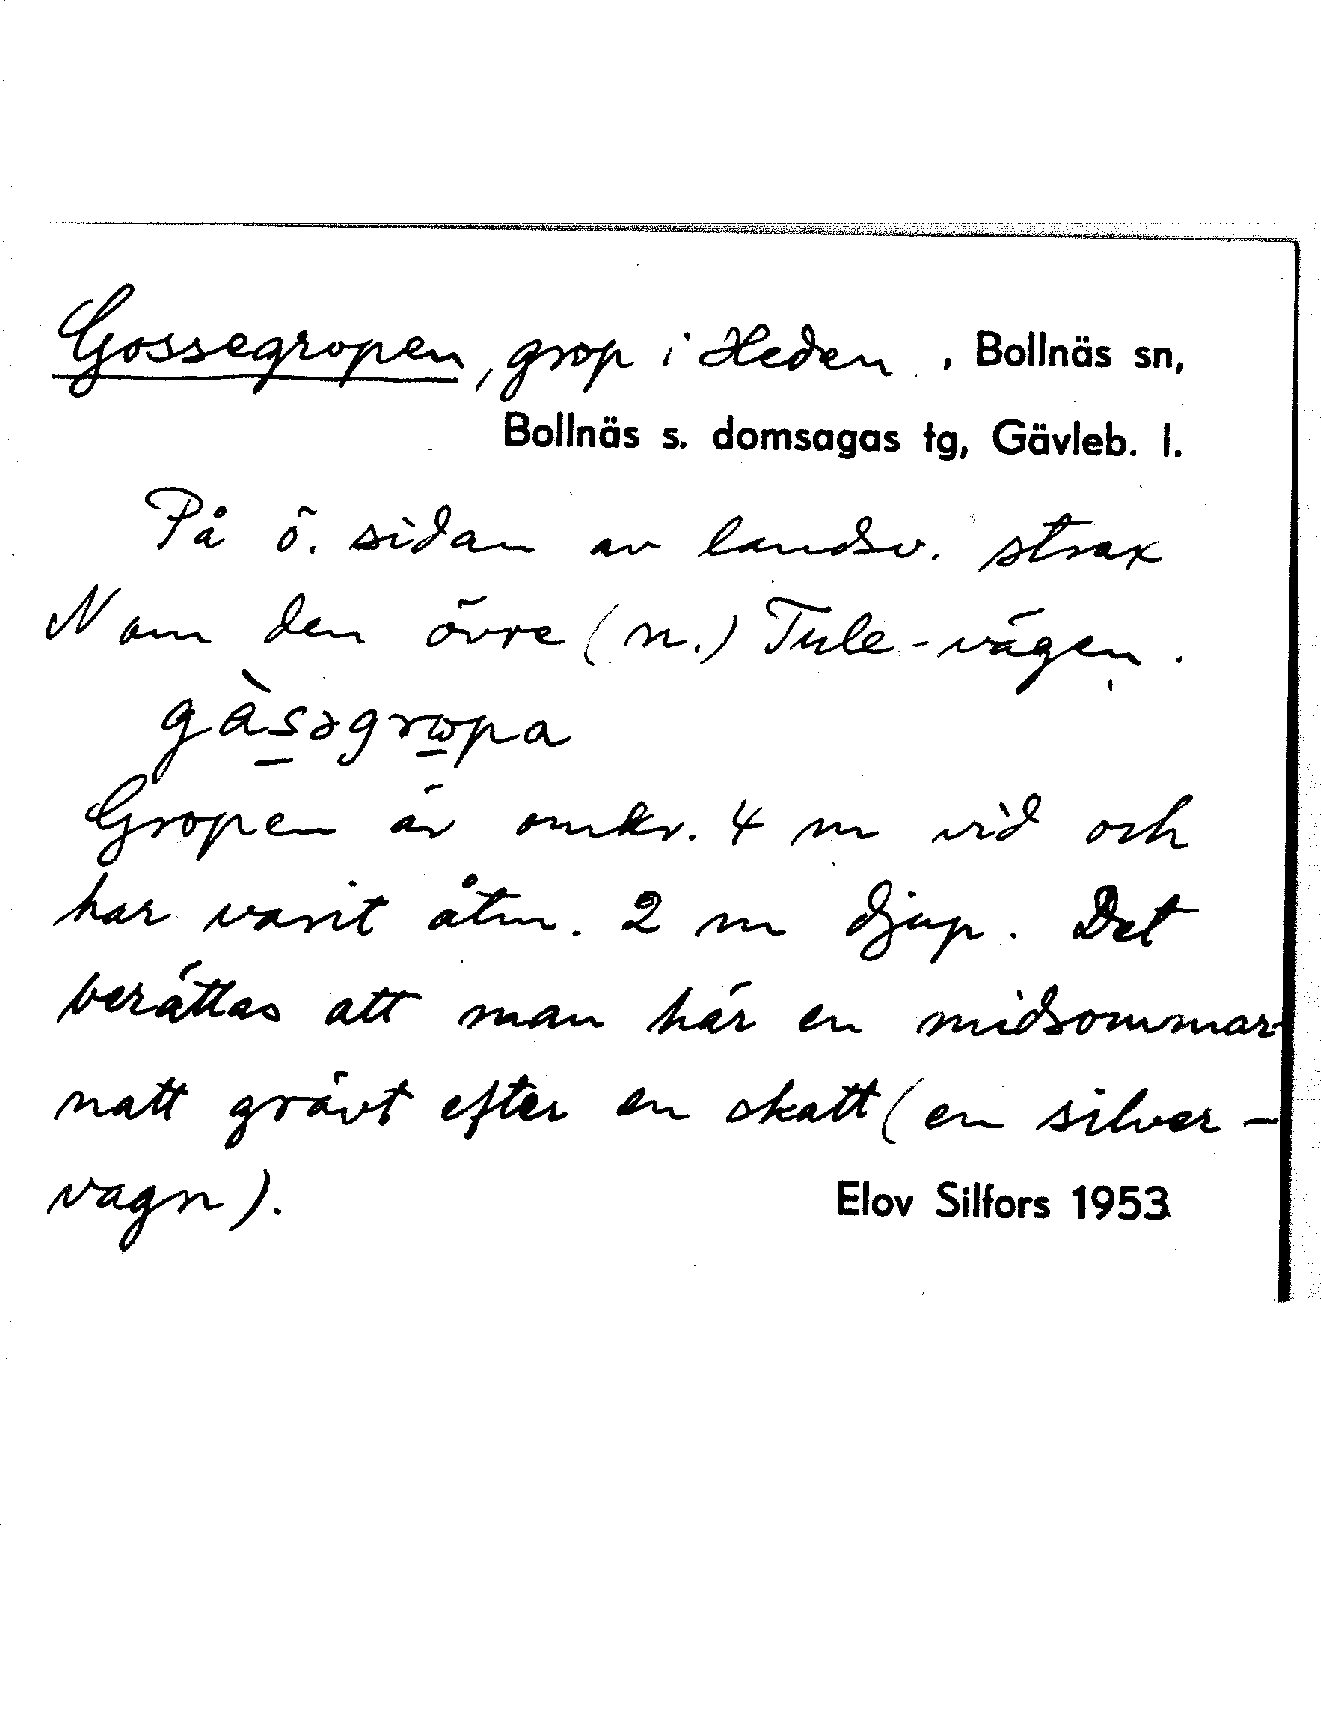 Gossegropen, grop i Heden , Bollnäs sn,
Bollnäs s. domsagas tg, Gävleb. l.
På ö. sidan av landsv. strax
N om den övre (n.) Tule-vägen.
gàsəgrωpa
Gropen är omkr. 4 m vid och
har varit åtm. 2 m djup. Det
berättas att man här en midsommar-
natt grävt efter en skatt (en silver-
vagn). Elov Silfors 1953